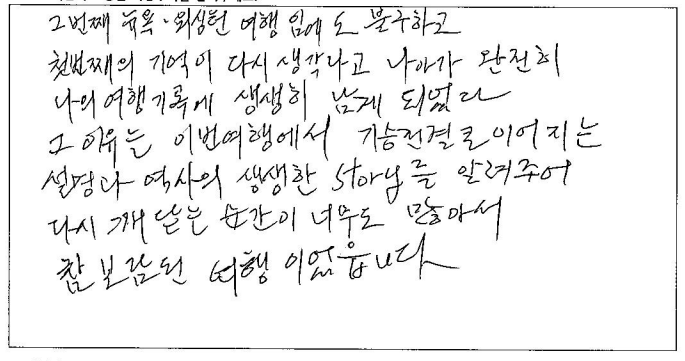 2번째 뉴욕·워싱턴 여행 임에도 불구하고
첫번째의 기억이 다시 생각나고 나아가 완전히
나의 여행기록에 생생히 남게 되었다
그 이유는 이번여행에서 기승전결로 이어지는
설명과 역사의 생생한 story를 알려주어
다시 깨닫는 순간이 너무도 많아서
참 보람된 여행 이었읍니다